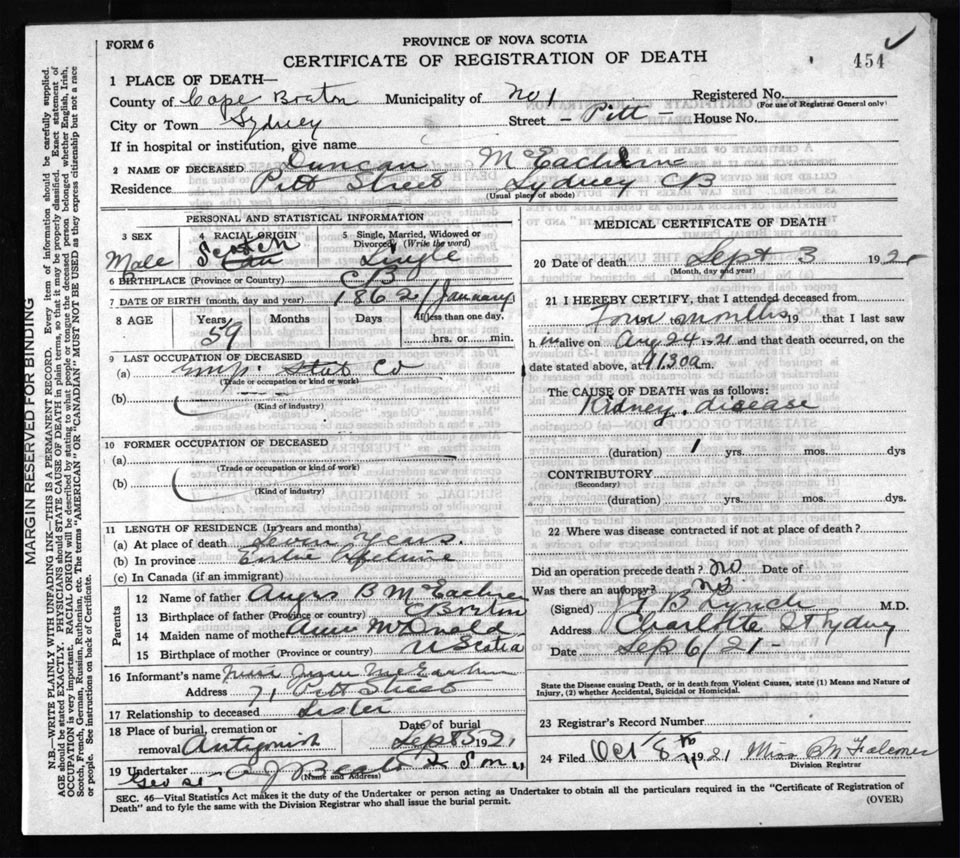 FORM 6
PROVINCE OF NOVA SCOTIA
CERTIFICATE OF REGISTRATION OF DEATH
454
1 PLACE OF DEATH—
County of Cape Breton Municipality of No 1 Registered No.
(For use of Registrar General only)
City or Town Sydney Street - Pitt - House No.
If in hospital or institution, give name
2 NAME OF DECEASED Duncan McEachern
Residence Pitt Street Sydney CB
(Usual place of abode)
PERSONAL AND STATISTICAL INFORMATION
3 SEX 4 RACIAL ORIGIN 5 Single, Married, Widowed or Divorced, (Write the word)
Male Scotch Single
6 BIRTHPLACE (Province or Country) CB
7 DATE OF BIRTH (month, day and year) 1862 / January
8 AGE Years Months Days If less than one day.
59 hrs. or min.
9 LAST OCCUPATION OF DECEASED
(a) Emp. Co
(Trade or occupation or kind or work)
(b)
(Kind of industry)
10 FORMER OCCUPATION OF DECEASED
(a)
(Trade or occupation or kind of work)
(b)
(Kind of industry)
11 LENGTH OF RESIDENCE (In years and months)
(a) At place of death Seven years.
(b) In province Entire lifetime
(c) In Canada (if an immigrant)
Parents
12 Name of father Angus B McEachern
13 Birthplace of father (Province or country) C Breton
14 Maiden name of mother Ann McDonald
15 Birthplace of mother (Province or country) N Scotia
16 Informant's name McEachern
Address 71 Pitt Street
17 Relationship to deceased Sister
18 Place of burial, cremation or removal Antigonish
Date of burial Sep 5 1921
19 Undertaker A J Beaton & Son
(Name and Address)
Geo St.
MEDICAL CERTIFICATE OF DEATH
20 Date of death Sept 3 1921
(Month, day and year)
21 I HEREBY CERTIFY, that I attended deceased from
Four to months 19 that I last saw
him alive on Aug 24 1921 and that death occurred, on
date stated above, at 9:30 a m.
The CAUSE OF DEATH was as follows:
Kidney disease
(duration) 1 yrs. mos. dys
CONTRIBUTORY
(Secondary)
(duration) yrs. mos. dys.
22 Where was disease contracted if not at place of death?
Did an operation precede death? No Date of
Was there an autopsy? No
(Signed) J B Lynch M.D.
Address Charlotte St Sydney
Date Sep 6/21 -
State the Disease causing Death, or in death from Violent Causes, state (1) Means and Nature of Injury, (2) whether Accidental, Suicidal or Homicidal.
23 Registrar's Record Number
24 Filed Oct 8th 1921 Miss B M Falconer
Division Registrar
SEC. 46—Vital Statistics Act makes it the duty of the Undertaker or person acting as Undertaker to obtain all the particulars required in the "Certificate of Registration of
Death" and to fyle the same with the Division Registrar who shall issue the burial permit.
(OVER)
MARGIN RESERVED FOR BINDING
N.B.—WRITE PLAINLY WITH UNFADING INK—THIS IS A PERMANENT RECORD. Every item of information should be carefully supplied.
AGE should be stated EXACTLY. PHYSICIANS should STATE CAUSE OF DEATH in plain terms, so that it may be properly classified. Exact statement of
OCCUPATION is very important. RACIAL ORIGIN will be described by stating to what people or tongue the deceased person belonged whether English, Irish,
Scotch, French, German, Russian, Ruthenian, etc. The terms "AMERICAN" OR "CANADIAN" MUST NOT BE USED as they express citizenship but not a race
or people. See instructions on back of Certificate.